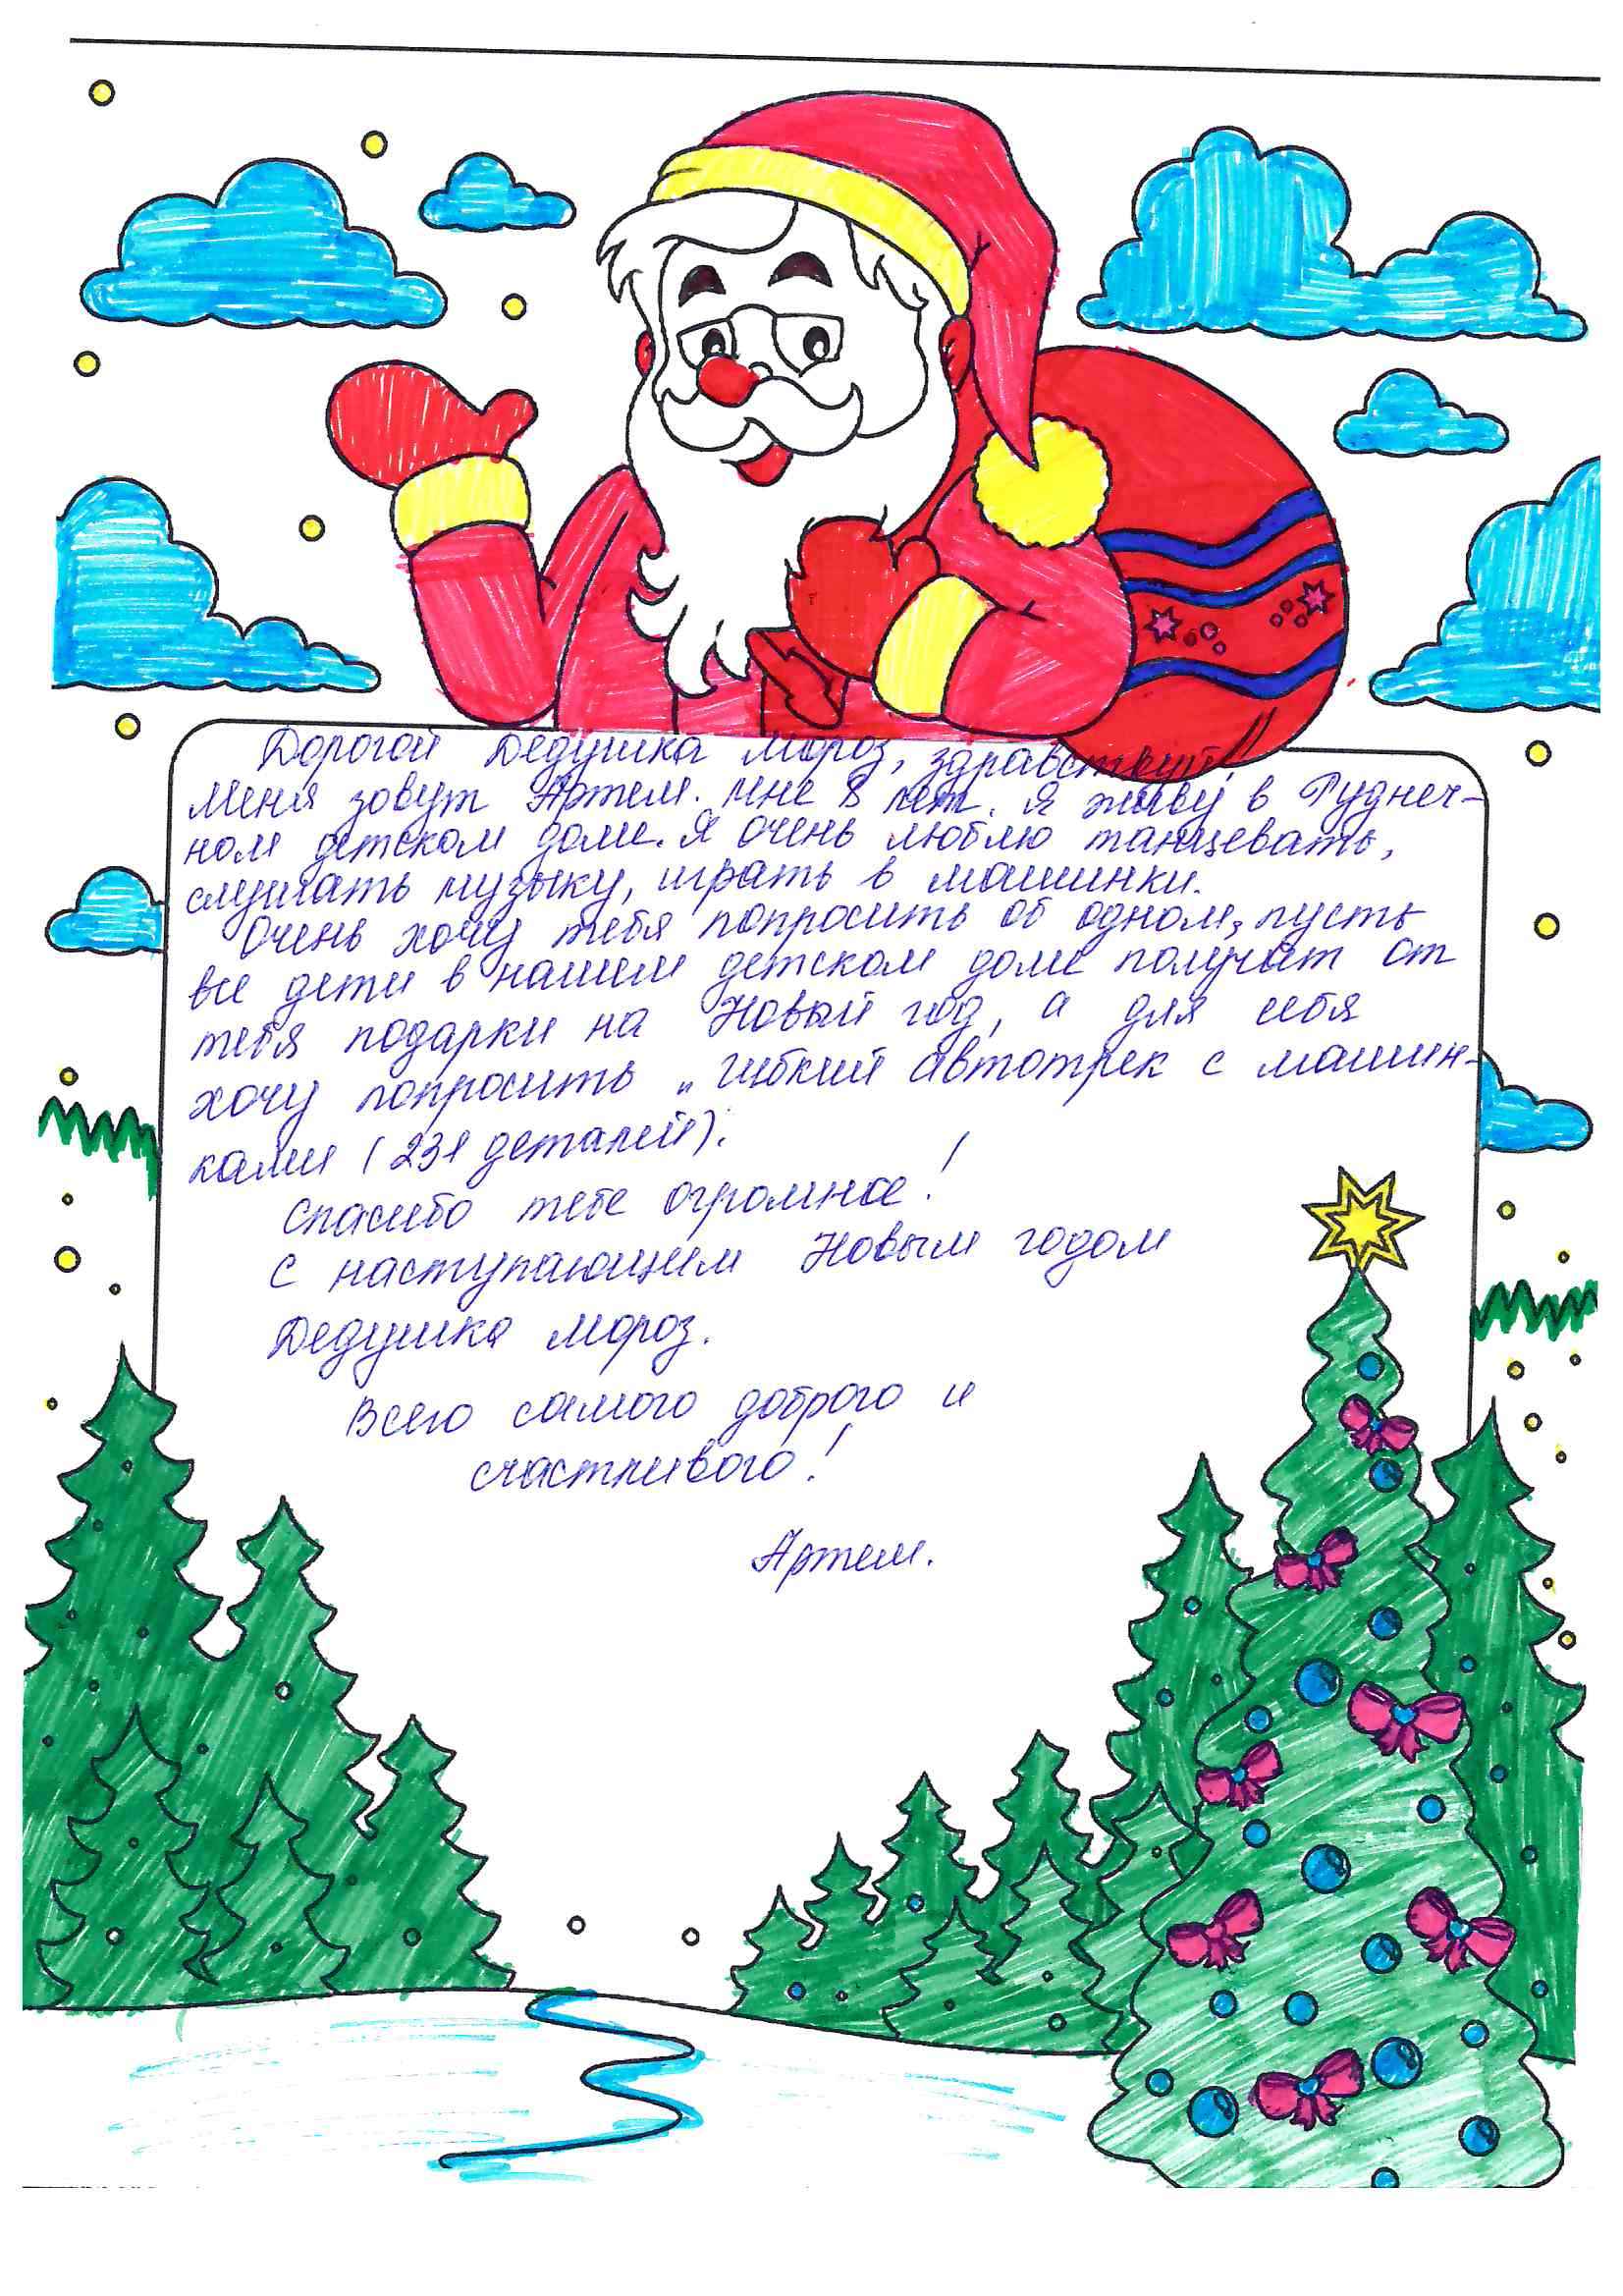 Дорогой Дедушка Мороз, здравствуй!
Меня зовут Артем. Мне 8 лет. Я живу в Руднеч-
ном детском доме. Я очень люблю танцевать,
слушать музыку, играть в машинки.
Очень хочу тебя попросить об одном, пусть
все дети в нашем детском доме получат от
тебя подарки на Новый год, а для себя
хочу попросить „Гибкий автотрек с машин-
ками (231 деталей).
Спасибо тебе огромное!
С наступающим Новым годом
Дедушка Мороз.
Всего самого доброго и
счастливого!
Артем.